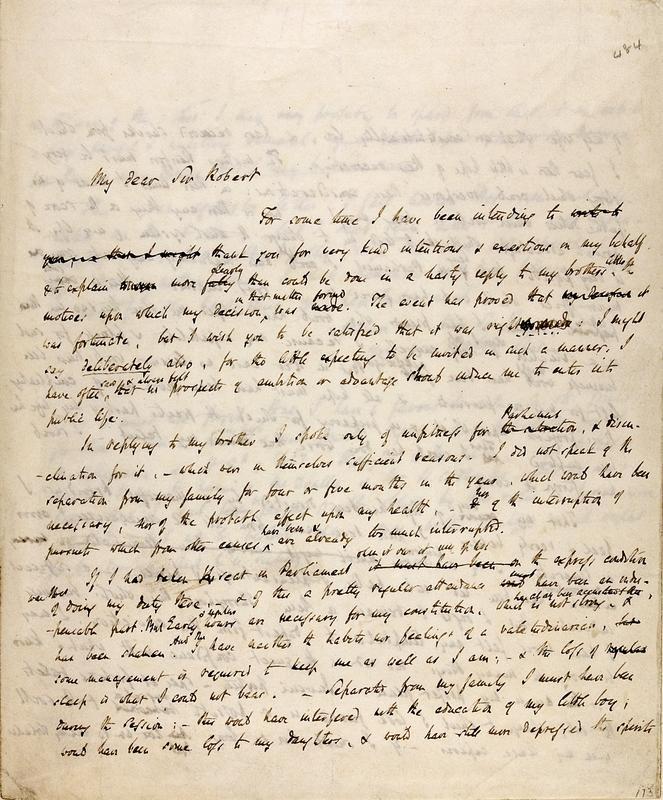 484
My dear Sir Robert
For some time I have been intending to
thank you for very kind intentions & exertions on my behalf,
clearly
& to explain more than could be done in a hasty reply to my brother, the
in that matter formed
motives upon which my decision, was made. The event has proved that it
was fortunate; but I wish you to be satisfied that it was right: I might
say deliberately also, for tho little expecting to be invited in such a manner, I
said & always felt
have often that no prospects of ambition or advantage should induce me to enter into
public life.
Parliament
In replying to my brother I spoke only of unfitness for the situation, & disin-
-clination for it, – which were in themselves sufficient reasons. I did not speak of the
separation from my family for four or five months in the year, which would have been
necessary, nor of the probable effect upon my health, – of the interruption of
have been &
pursuits which from other causes are already too much interrupted.
If I had taken seat in Parliament it must have been on the express condition
of doing my duty there, – & of this a pretty regular attendance must have been an indis-
-pensable part. But Early hours are necessary for my constitution, &
has been shaken. And tho I have neither the habits nor feelings of a valetudinarian,
some management is required to keep me as well as I am; – & the loss of regular
sleep is what I could not bear. – Separated from my family I must have been
during the session; – this would have interfered with the education of my little boy;
would have been some loss to my daughters, & would have still more depressed the spirits
173